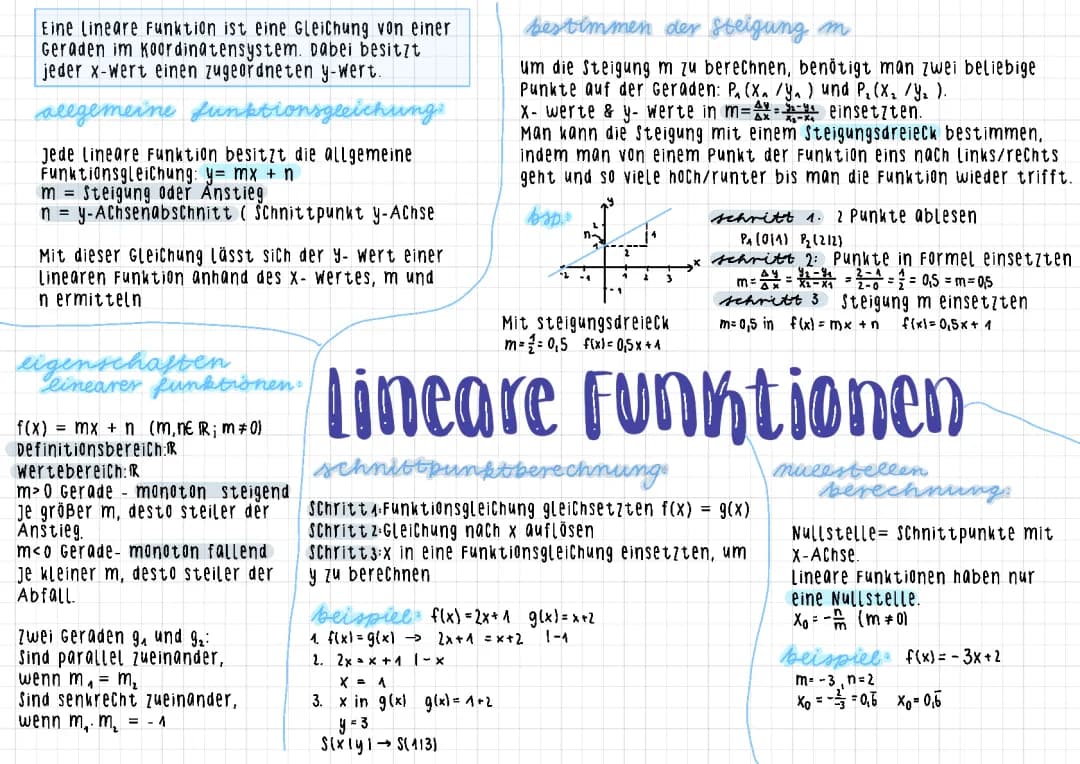 Eine lineare Funktion ist eine Gleichung von einer
Geraden im Koordinatensystem. Dabei besitzt
jeder x-Wert einen zugeordneten y-Wert.
allgemeine funktionsgleichung:
Jede lineare Funktion besitzt die allgemeine
Funktionsgleichung: y= mx + n
m = Steigung oder Anstieg
n = y-Achsenabschnitt ( Schnittpunkt y-Achse
Mit dieser Gleichung lässt sich der y- Wert einer
linearen Funktion anhand des x- Wertes, m und
n ermitteln
bestimmen der steigung m
um die Steigung m zu berechnen, benötigt man zwei beliebige
Punkte auf der Geraden: P₁ (x₁ /y₁ ) und P₂ (x₂ /y₂ ).
x- werte & y- Werte in m= Δy/Δx = y₂-y₁/x₂-x₁ einsetzten.
Man kann die Steigung mit einem Steigungsdreieck bestimmen,
indem man von einem Punkt der Funktion eins nach links/rechts
geht und so viele hoch/runter bis man die Funktion wieder trifft.
bsp:
y
2
n
1
2
x
-2 -1 1 2 3
-1
Mit steigungsdreieck
m= 1/2 = 0,5 f(x)= 0,5x+1
schritt 1. 2 Punkte ablesen
P₁ (0|1) P₂ (2|2)
schritt 2: Punkte in Formel einsetzten
m= Δy/Δx = y₂-y₁/x₂-x₁ = 2-1/2-0 = 1/2 = 0,5 = m=0,5
schritt 3 Steigung m einsetzten
m= 0,5 in f(x) = mx +n f(x)= 0,5x+ 1
Lineare Funktionen
eigenschaften
linearer funktionen:
f(x) = mx + n (m,n∈ ℝ; m≠0)
Definitionsbereich:ℝ
Wertebereich:ℝ
m>0 Gerade - monoton steigend
Je größer m, desto steiler der
Anstieg.
m<0 Gerade- monoton fallend
Je kleiner m, desto steiler der
Abfall.
Zwei Geraden g₁ und g₂:
Sind parallel zueinander,
wenn m₁ = m₂
Sind senkrecht zueinander,
wenn m₁ · m₂ = -1
schnittpunktberechnung:
Schritt 1:Funktionsgleichung gleichsetzten f(x) = g(x)
Schritt 2:Gleichung nach x auflösen
Schritt 3:x in eine Funktionsgleichung einsetzten, um
y zu berechnen
beispiel: f(x)=2x+1 g(x)= x+2
1. f(x)=g(x) → 2x+1 =x+2 |-1
2. 2x = x +1 |-x
x = 1
3. x in g(x) g(x)= 1+2
y=3
S(x|y) → S(1|3)
nullstellen
berechnung:
Nullstelle= Schnittpunkte mit
x-Achse.
Lineare Funktionen haben nur
eine Nullstelle.
x₀ = - n/m (m ≠0)
beispiel: f(x)= -3x+2
m= -3, n=2
x₀ = - 2/-3 = 0,6̅ x₀= 0,6̅